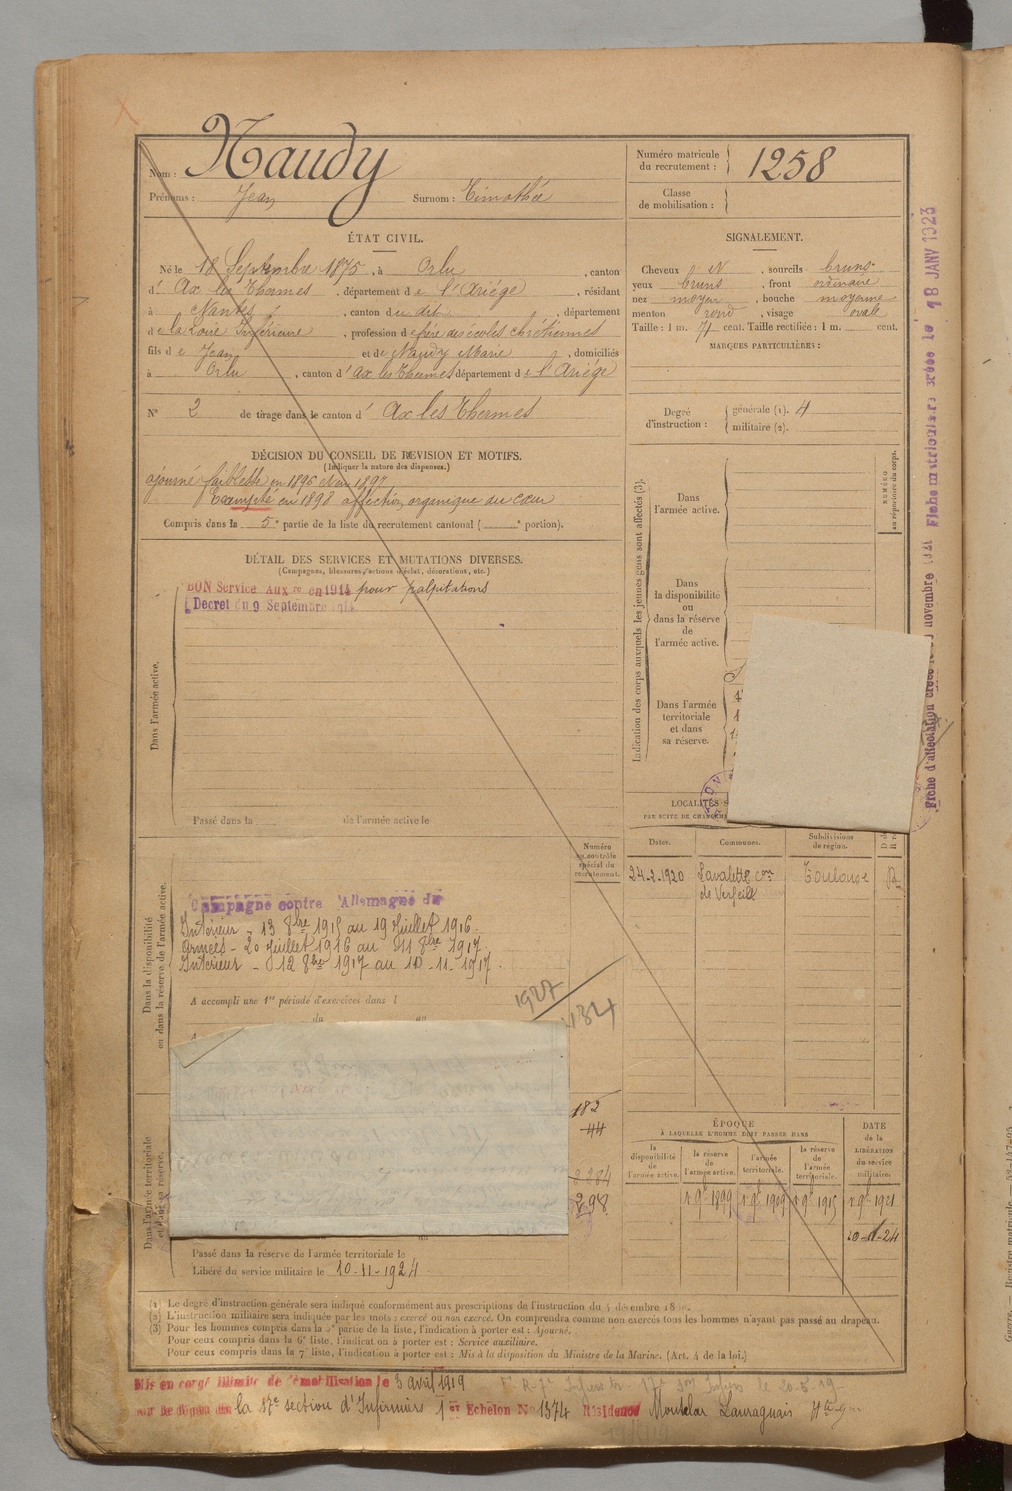 Nom : Naudy
Prénoms : Jean Surnom : Timothée
Numéro matricule du recrutement : 1258
Classe de mobilisation :
ÉTAT CIVIL.
Né le 18 Septembre 1875, à Orlu, canton
d' Ax les Thermes, département de l'Ariège, résidant
à Nantes, canton du dit, département
de la Loire Inférieure, profession de frère des écoles chrétiennes
fils de Jean et de Naudy Marie, domiciliés
à Orlu, canton d'Ax les Thermes département de l'Ariège
N° 2 de tirage dans le canton d' Ax les Thermes
SIGNALEMENT.
Cheveux N, sourcils bruns
yeux bruns, front ordinaire
nez moyen, bouche moyenne
menton rond, visage ovale
Taille : 1 m. 71 cent. Taille rectifiée : 1 m. cent.
MARQUES PARTICULIÈRES :
Degré d'instruction : générale (1). 4
militaire (2).
DÉCISION DU CONSEIL DE REVISION ET MOTIFS.
(Indiquer la nature des dispenses.)
ajourné faiblesse en 1896 et en 1897
Exempté en 1898 affection organique du cœur
Compris dans la 5e partie de la liste du recrutement cantonal ( e portion).
DÉTAIL DES SERVICES ET MUTATIONS DIVERSES.
(Campagnes, blessures, actions d'éclat, décorations, etc.)
BON Service Auxre en 1914 pour palpitations
Decret du 9 Septembre 1914
Dans l'armée active.
Passé dans la de l'armée active le
Indication des corps auxquels les jeunes gens sont affectés (3).
Dans l'armée active.
NUMÉRO au répertoire du corps.
Dans la disponibilité ou dans la réserve de l'armée active.
Dans l'armée territoriale et dans sa réserve.
LOCALITÉS
PAR SUITE DE CHANGEM
Dates. Communes. Subdivisions de région.
24-2-1920 Lavalette con de Verfeil Toulouse R
Numéro au contrôle spécial du recrutement.
Dans la disponibilité ou dans la réserve de l'armée active.
Campagne contre l'Allemagne du
Intérieur - 13 8bre 1915 au 19 Juillet 1916.
Armées - 20 Juillet 1916 au 11 8bre 1917.
Intérieur - 12 8bre 1917 au 10-11-1917.
A accompli une 1re période d'exercices dans l
du au
1927
1324
182
44
298
Dans l'armée territoriale et dans sa réserve.
Passé dans la réserve de l'armée territoriale le
Libéré du service militaire le 10-11-1924
ÉPOQUE
À LAQUELLE L'HOMME DOIT PASSER DANS
la disponibilité de l'armée active.
la réserve de l'armée active.
l'armée territoriale.
la réserve de l'armée territoriale.
DATE de la LIBÉRATION du service militaire.
1 9bre 1899 1 9bre 1909 1 9bre 1915 1 9bre 1921
10-11-24
(1) Le degré d'instruction générale sera indiqué conformément aux prescriptions de l'instruction du 4 décembre 18
(2) L'instruction militaire sera indiquée par les mots : exercé ou non exercé. On comprendra comme non exercés tous les hommes n'ayant pas passé au drapeau.
(3) Pour les hommes compris dans la 5e partie de la liste, l'indication à porter est : Ajourné.
Pour ceux compris dans la 6e liste, l'indication à porter est : Service auxiliaire.
Pour ceux compris dans la 7e liste, l'indication à porter est : Mis à la disposition du Ministre de la Marine. (Art. 4 de la loi.)
Mis en congé illimité de démobilisation le 3 avril 1919
la 17e section d'Infirmiers 1er Echelon N° 1374 Résidence Montclar Lauraguais Hte Gne
Fiche matriculaire créée le 18 JANV 1923
Fiche d'affectation créée le novembre